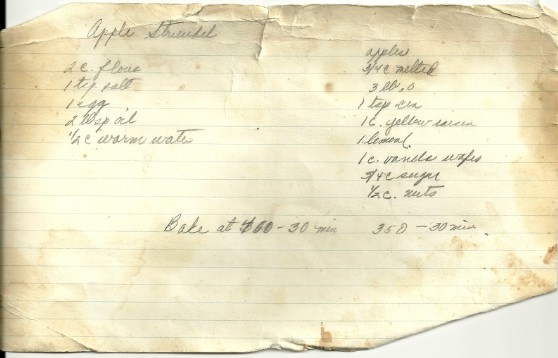 Apple Streudel
2 c. flour
1 tsp salt
1 egg
2 tbsp oil
1/2 c warm water
apples
3/4 c melted
3 lb.
1 tsp cin
1 c. yellow
1 lemon
1 c. vanila wafers
3/4 c sugar
1/2 c. nuts
Bake at 400 - 30 min 350 - 30 min.